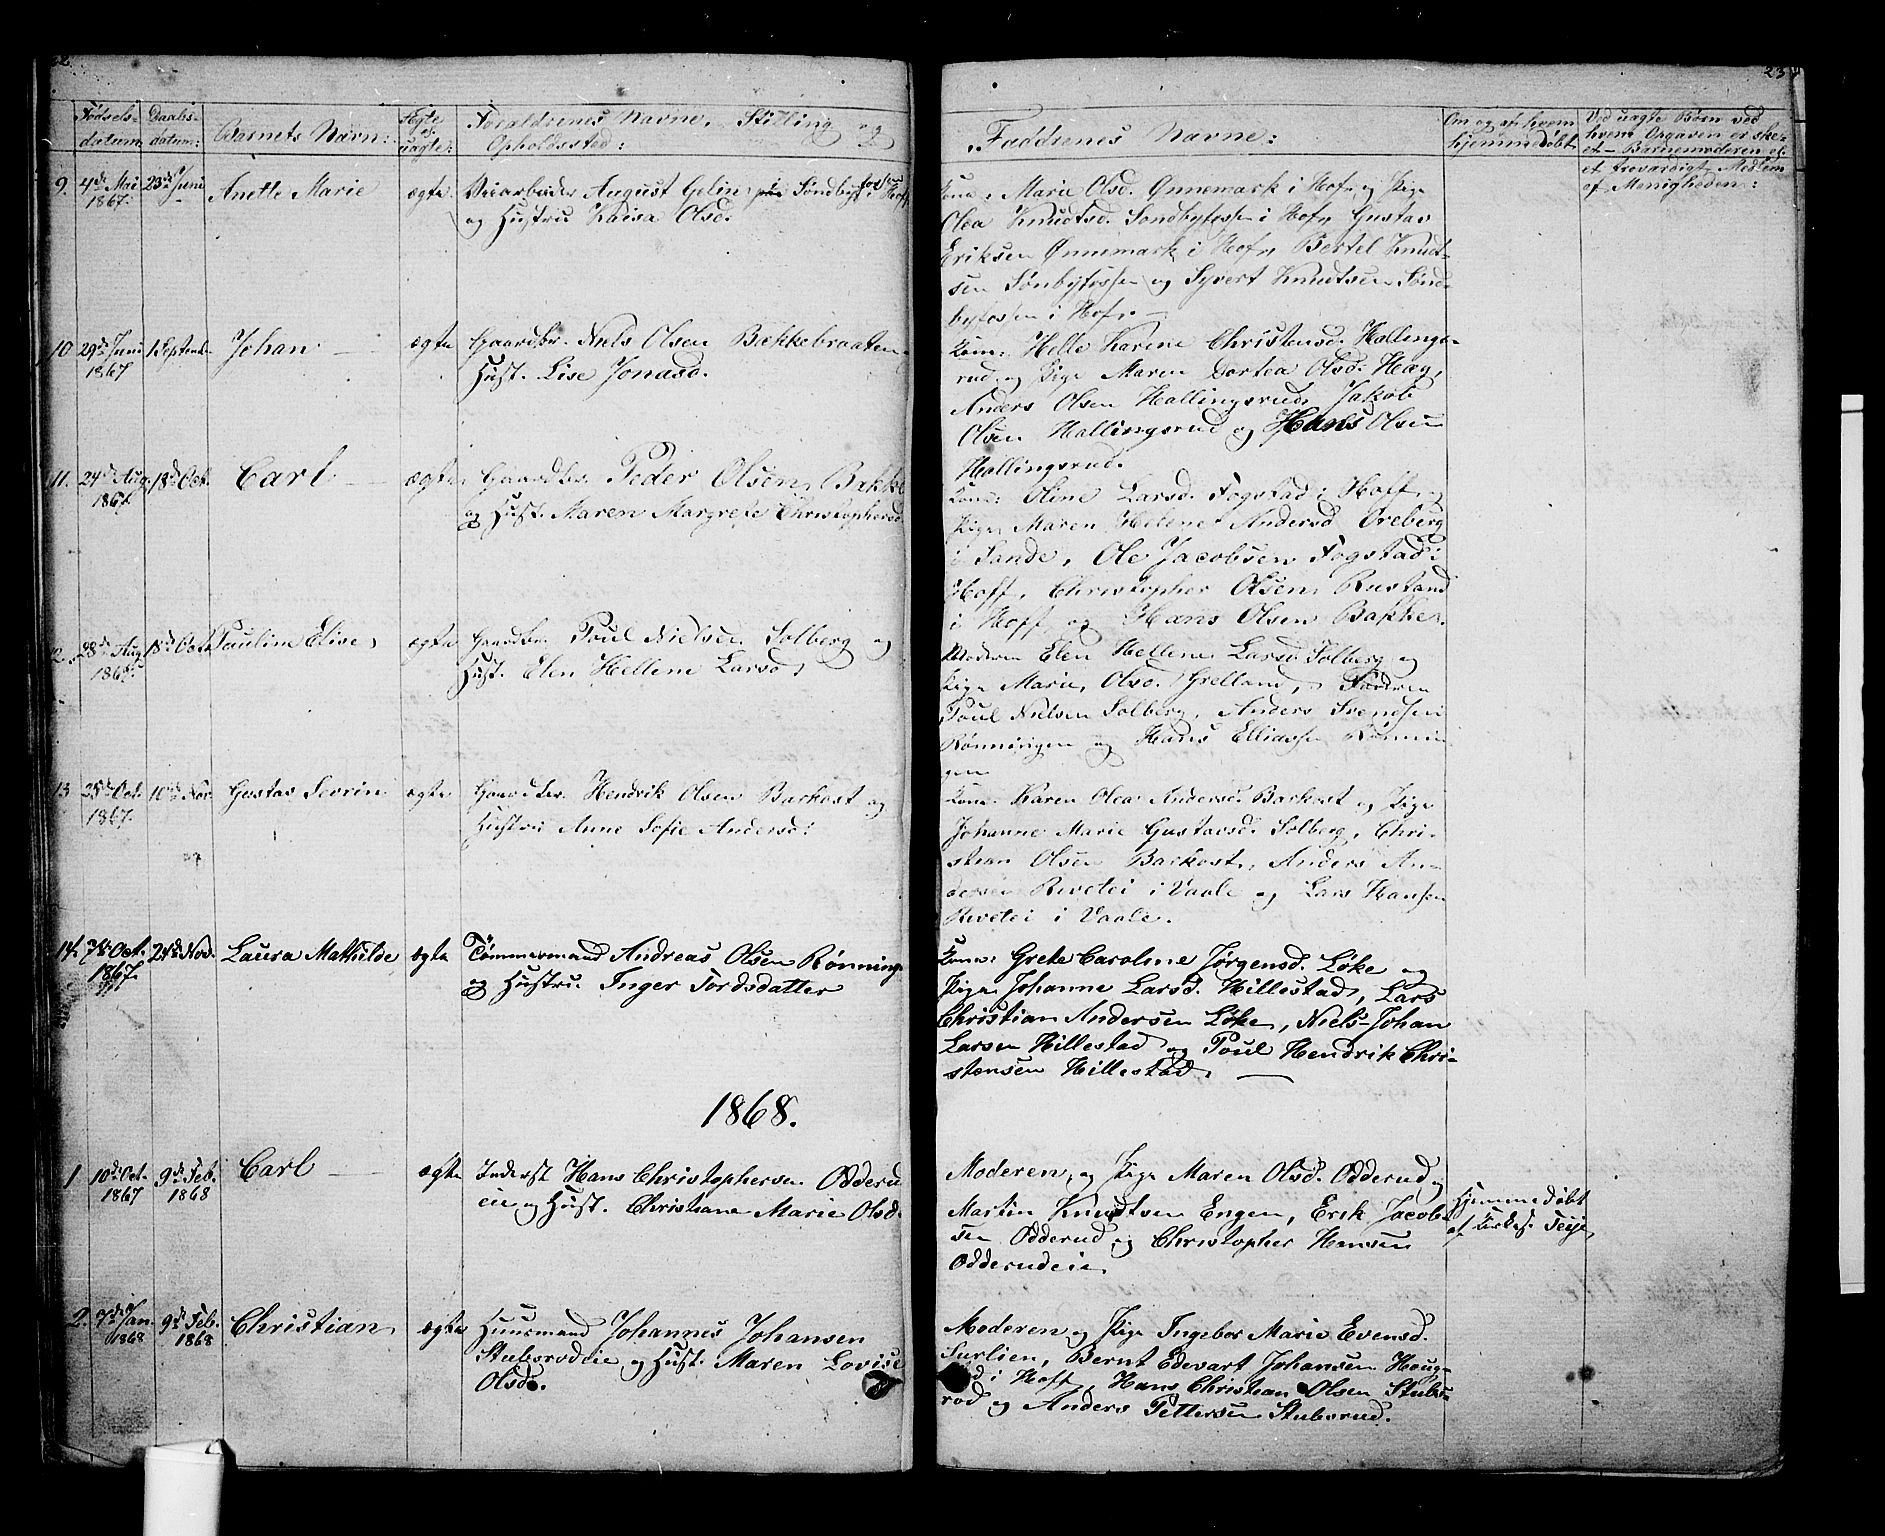 22.
Fødsels-
datum:
Daabs-
datum:
Barnets Navn:
Ægte
el.
uægte:
Foraldrenes Navne, Stilling og
Opholdssted:
9.
4de Mai
1867.
23de Juni
Anette Marie
ægte
Veiarbeider August Gelin Søndbyfossen i Hof
og Hustru Kaisa Olsd.
10
29de Juni
1867
1 Septemb.
Johan
ægte
Gaardbr. Niels Olsen Bækkebraaten
Hust. Lise Jonasd.
11.
24de Aug.
1867.
18de Oct.
Carl
ægte
Gaardbr. Peder Olsen, Bakke
og Hust. Maren Margrete Christophersd.
12.
28de Aug.
1867.
18de Oct.
Pauline Elise
ægte
Gaardbr. Poul Nielsen Solberg og
Hust. Elen Hellene Larsd
13
25de Oct.
1867.
10de Nov.
Gustav Sevrin
ægte
Gaardbr. Hendrik Olsen Barkost og
Hustru Anne Sofie Andersd:
14.
7de Oct.
1867.
24de Nov.
Laura Mathilde
ægte
Tömmermand Andreas Olsen Rönning
og Hustru Inger Tordsdatter
1868.
1
10de Oct.
1867
9de Feb.
1868
Carl
ægte
Inderst Hans Christophersen Odderud
eie og Hust. Christiane Marie Olsd.
2.
7de Jan.
1868
9de Feb.
1868
Christian
ægte
Huusmand Johannes Johansen
Stubsrodeie og Hust. Maren Lovise
Olsd.
23
Faddrenes Navne:
Om og af hvem
hjemmedøbt:
Ved uægte Børn ved
hvem Opgaven er ske-
et – Barnemoderen el.
et troværdigt Medlem
af Menigheden:
Kone: Marie Olsd. Ønnemark i Hof, og Pige
Olea Knudtsd. Søndbyfossen i Hof, Gustav
Eriksen Ønnemark i Hof, Bertel Knudt-
sen Sønbyfossen og Syvert Knudtsen Sønd-
byfossen i Hof.
Kone: Helle Karine Christensd. Hallings-
rud, og Pige Maren Dortea Olsd. Hæg,
Anders Olsen Hallingsrud, Jakob
Olsen Hallingsrud og Hans Olsen
Hallingsrud.
Kone: Oline Larsd. Fogstad i Hoff, og
Pige Maren Helene Andersd Oreberg
i Sande, Ole Jacobsen Fogstad i
Hoff, Christopher Olsen Rustand
i Hoff og Hans Olsen Bakke.
Moderen Elen Hellene Larsd Solberg og
Pige Marie Olsd. Grelland, Fadren
Poul Nielsen Solberg, Anders Svendsen
Rönningen og Hans Elliassen Rönnin-
gen
Kone: Karen Olea Andersd. Barkost og Pige
Johanne Marie Gustavsd. Solberg, Chri-
stian Olsen Barkost, Anders An-
dersen Revetei i Vaale og Lars Hansen
Revetei i Vaale.
Kone: Grete Caroline Jørgensd. Løke og
Pige Johanne Larsd. Hillestad, Lars
Christian Andersen Løke, Niels-Johan
Larsen Hillestad og Poul Hendrik Chri-
stensen Hillestad.
Moderen, og Pige Maren Olsd. Odderud,
Martin Knudtsen Engen, Erik Jacob-
sen Odderud og Christopher Hansen
Odderudeie
Hjemmedøbt
af Kirkes.
Moderen og Pige Ingebor Marie Evensd.
Surlien, Bernt Edevart Johansen Houg-
i Hoff, Hans Christian Olsen Stubs-
rod og Anders Pettersen Stubsrud.